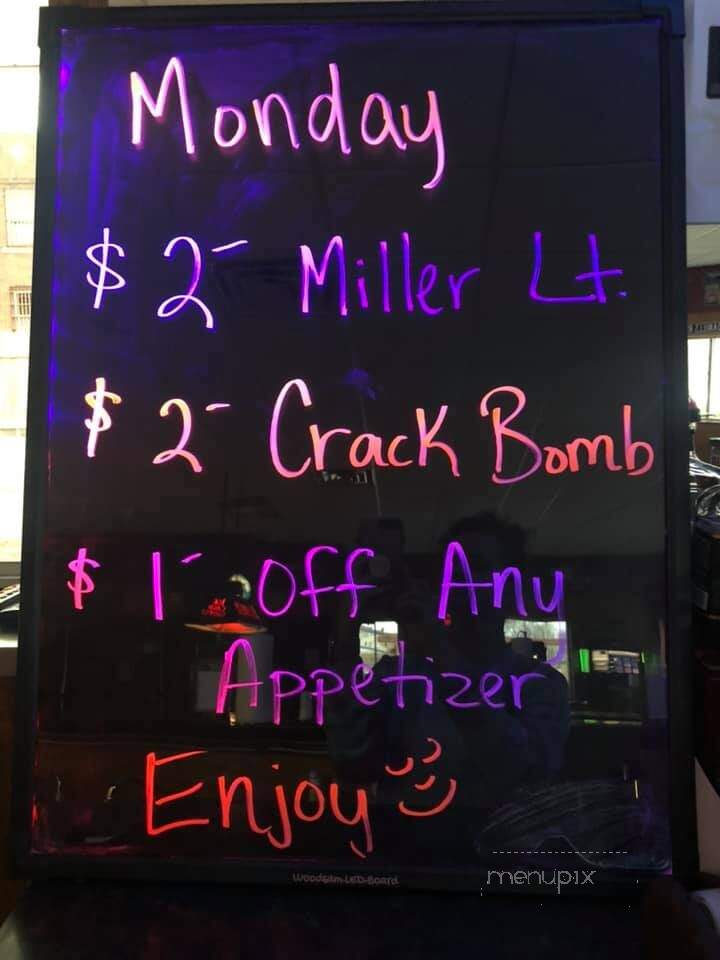 Monday
$2- Miller Lt.
$2- Crack Bomb
$1- Off Any
Appetizer
Enjoy
Woodsam-LED-Board
menupix